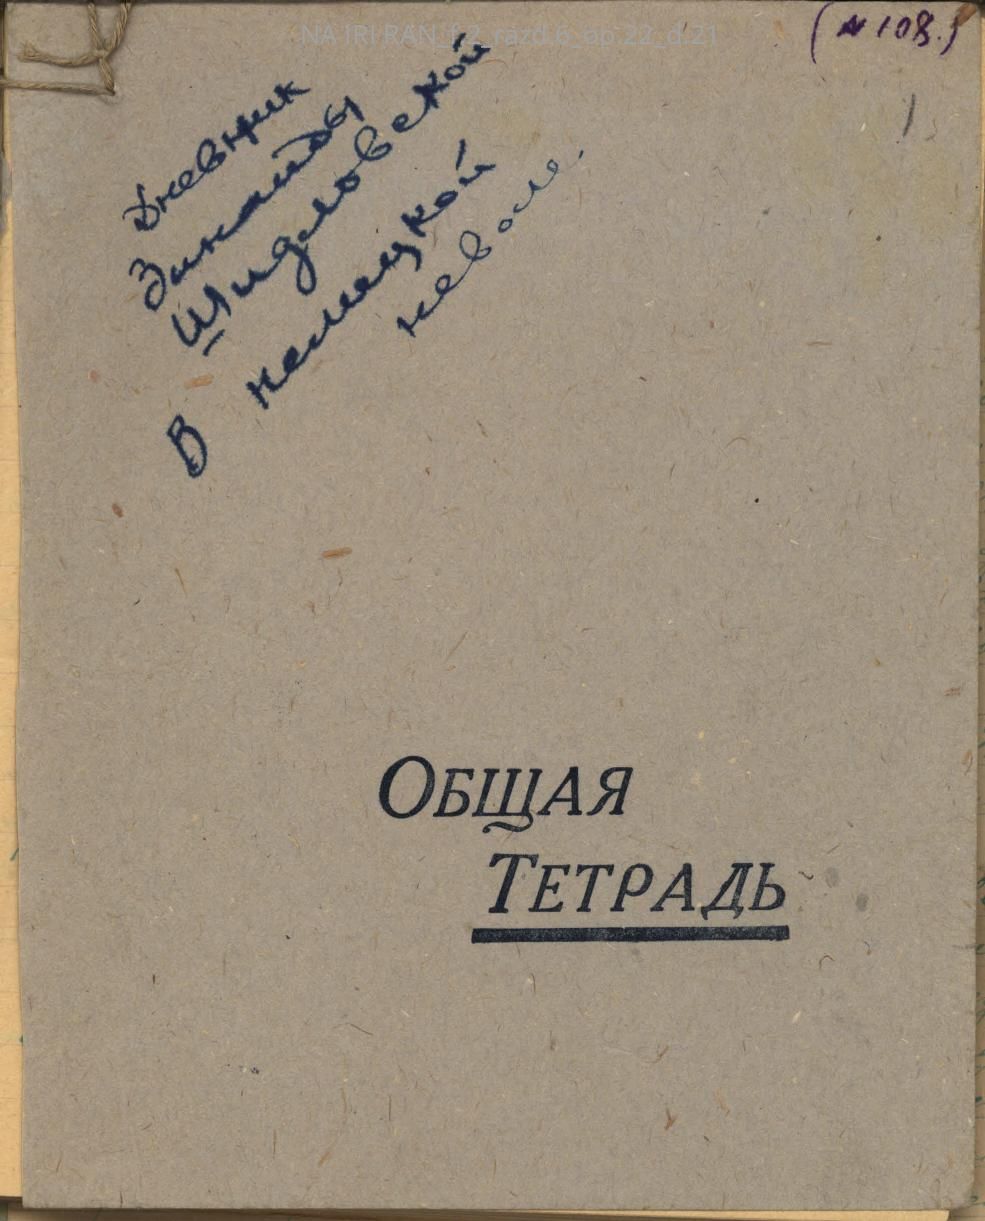 NA IRI RAN_f.2_razd.6_op.22_d.21
(№ 108.)
1
Дневник
Зинаиды
Шидловской
В немецкой
неволе.
ОБЩАЯ
ТЕТРАДЬ